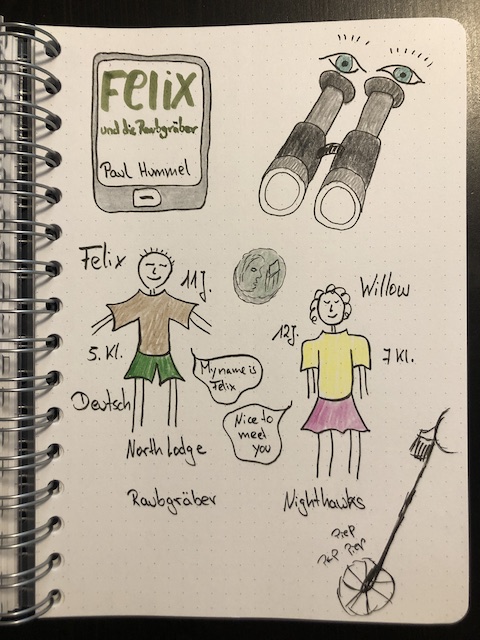 Felix
und die Raubgräber
Paul Hummel
Felix
11J.
5. Kl.
Deutsch
North Lodge
Raubgräber
My name is
Felix
Nice to
meet
you
Willow
12J.
7 Kl.
Nighthawks
PIEP
PIEP PIEP